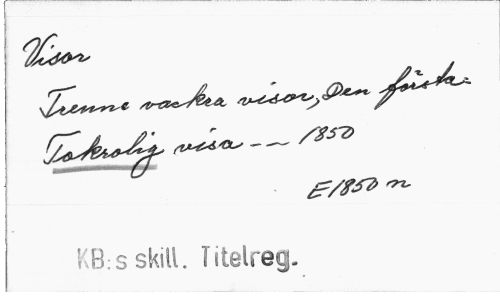 Visor
Trenne vackra visor, Den första:
Tokrolig visa -- 1850
E 1850 n
KB:s skill. Titelreg.